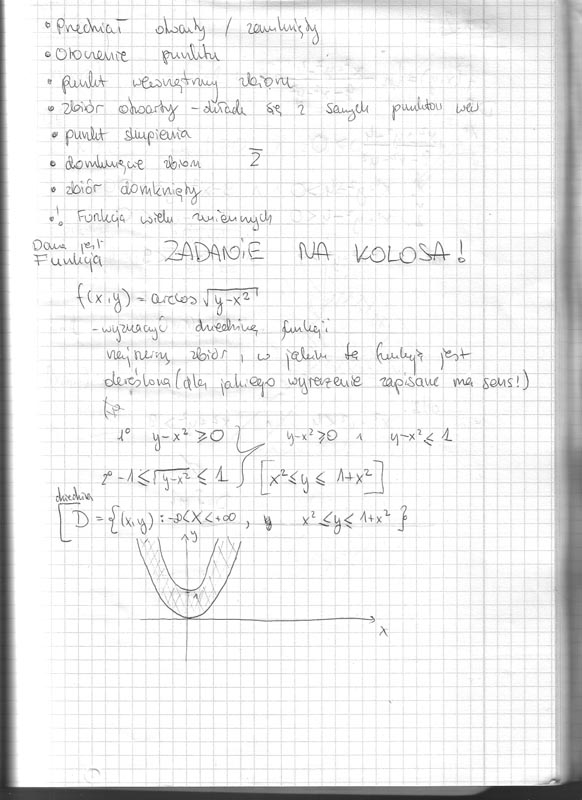 • Przedział otwarty / zamknięty
• Otoczenie punktu
• punkt wewnętrzny zbioru
• zbiór otwarty - składa się z samych punktów wew
• punkt skupienia
• domknięcie zbioru Z̅
• zbiór domknięty
•! Funkcja wielu zmiennych
Dana jest Funkcja ZADANIE NA KOLOSA!
f(x,y) = arccos √(y-x²)
- wyznaczyć dziedzinę funkcji
najszerszy zbiór, w jakim ta funkcja jest
określona (dla jakiego wyrażenie zapisane ma sens!)
1° y-x² ⩾ 0 } y-x² ⩾ 0 i y-x² ⩽ 1
2° -1 ⩽ √(y-x²) ⩽ 1 [x² ⩽ y ⩽ 1+x²]
dziedzina
D = {(x,y) : -∞<x<+∞, x² ⩽ y ⩽ 1+x²}
y
1
x